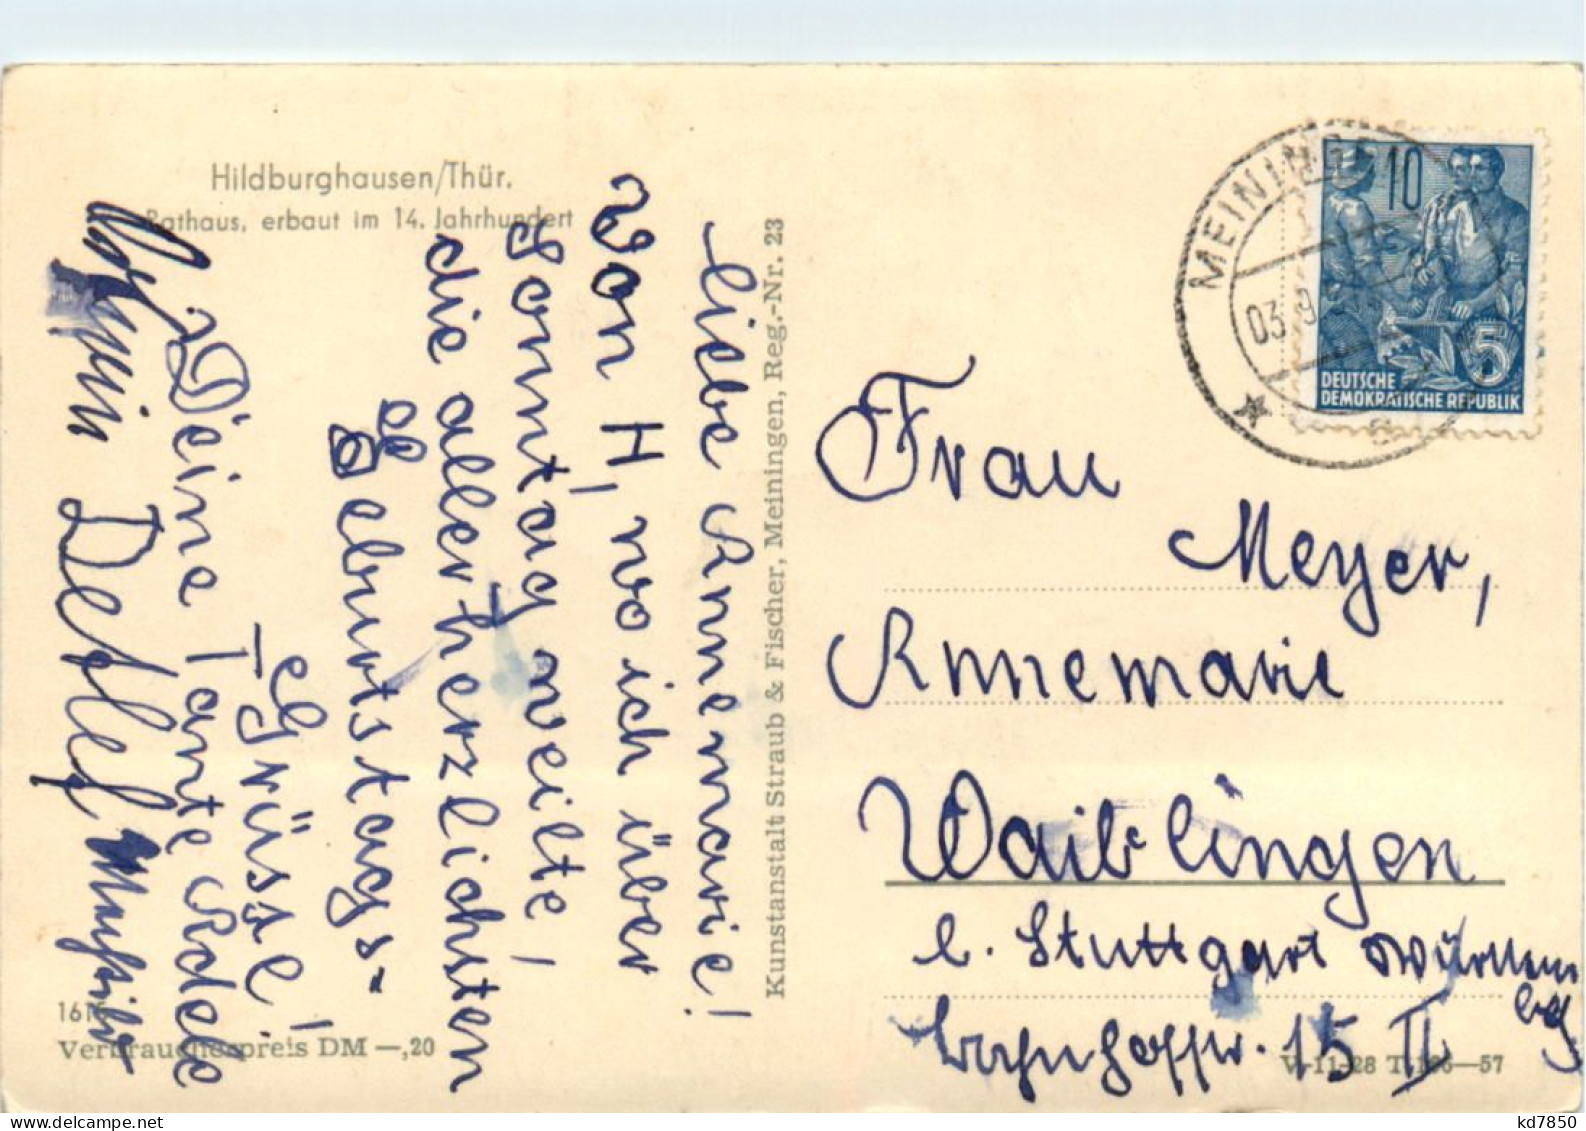 Hildburghausen/Thür.
Rathaus, erbaut im 14. Jahrhundert
liebe Annemarie!
Von H, wo ich über
Sonntag weilte!
die allerherzlichsten
Geburtstags-
Grüsse!
Deine Tante Adele
Detlef,
1616
Verbraucherpreis DM —,20
Kunstanstalt Straub & Fischer, Meiningen, Reg.-Nr. 23
MEININGEN
03.9
10
5
DEUTSCHE
DEMOKRATISCHE REPUBLIK
Frau
Meyer,
Annemarie
Waiblingen
b. Stuttgart Württem
bg
Bahnhofstr. 15 II
V-11-28 T.186—57
kd7850